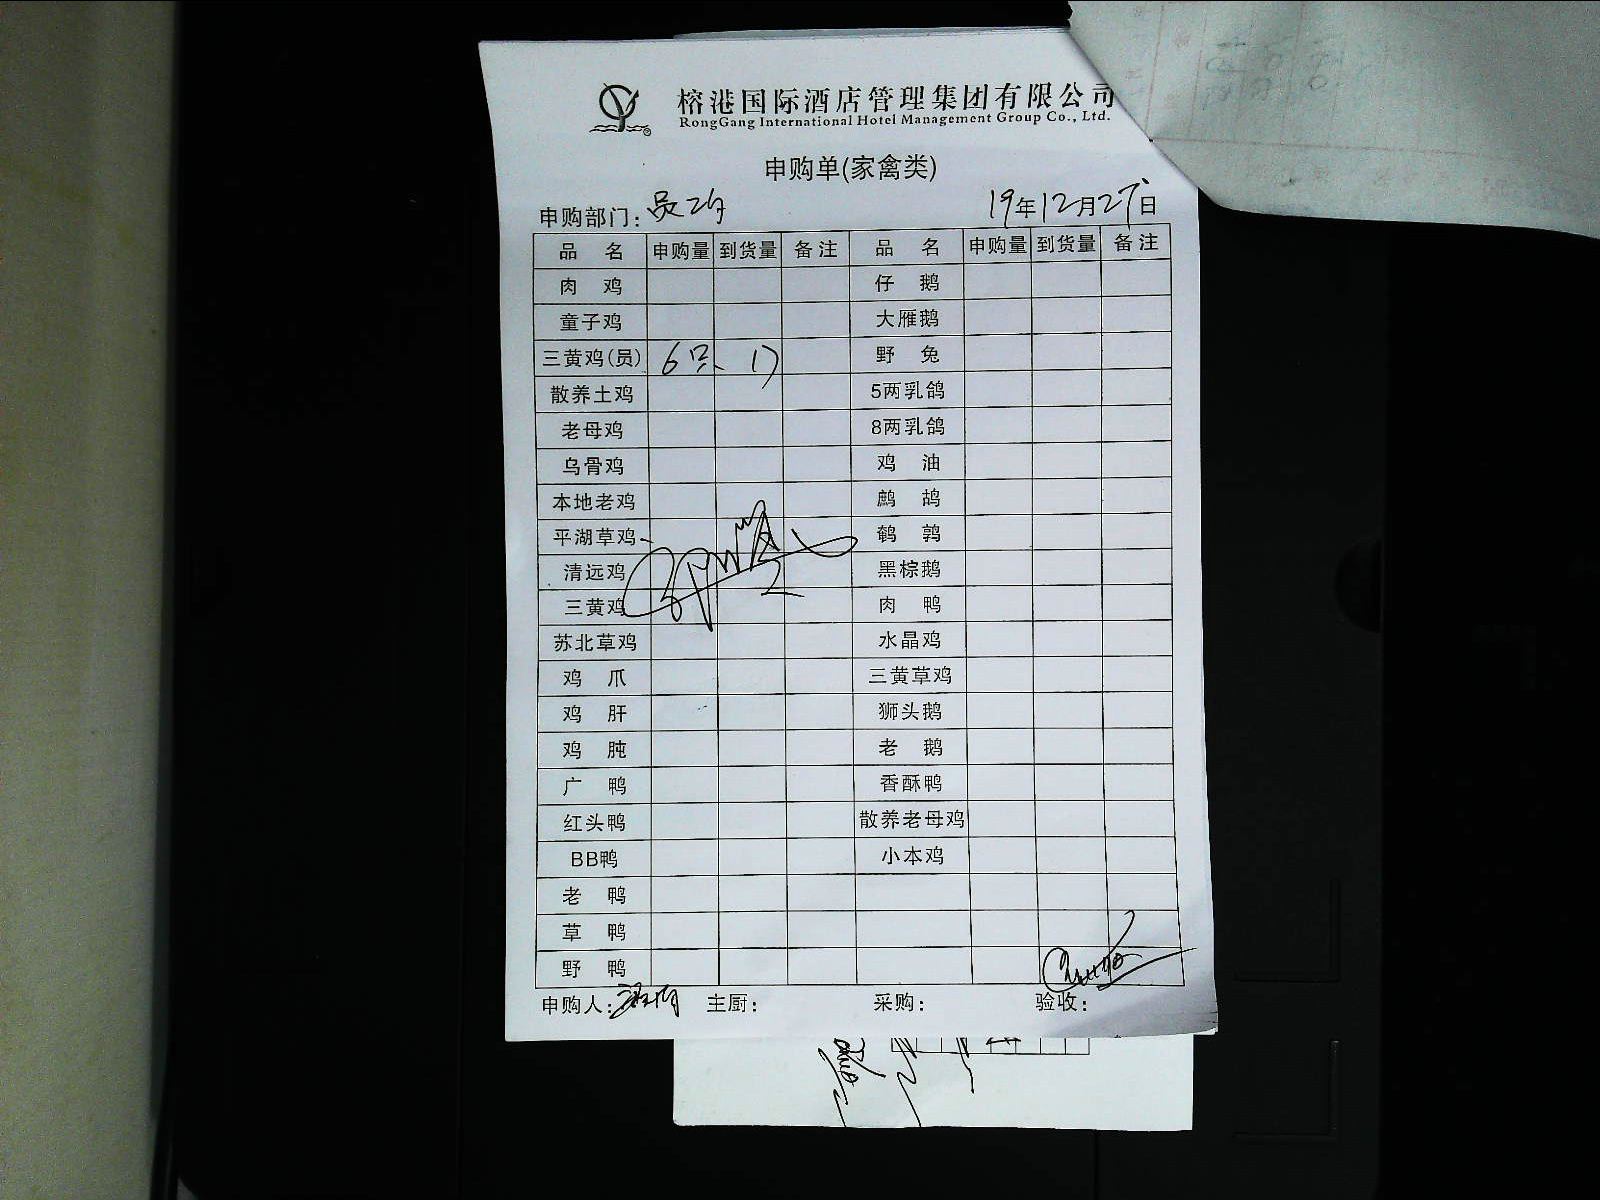 榕港国际酒店管理集团有限公司
RongGang International Hotel Management Group Co., Ltd.
申购单(家禽类)
申购部门: 19年12月27日
品 名 申购量 到货量 备注 品 名 申购量 到货量 备注
肉 鸡 仔 鹅
童子鸡 大雁鹅
三黄鸡(员) 6只 野 兔
散养土鸡 5两乳鸽
老母鸡 8两乳鸽
乌骨鸡 鸡 油
本地老鸡 鹧 鸪
平湖草鸡 鹌 鹑
清远鸡 黑棕鹅
三黄鸡 肉 鸭
苏北草鸡 水晶鸡
鸡 爪 三黄草鸡
鸡 肝 狮头鹅
鸡 肫 老 鹅
广 鸭 香酥鸭
红头鸭 散养老母鸡
BB鸭 小本鸡
老 鸭
草 鸭
野 鸭
申购人: 主厨: 采购: 验收: